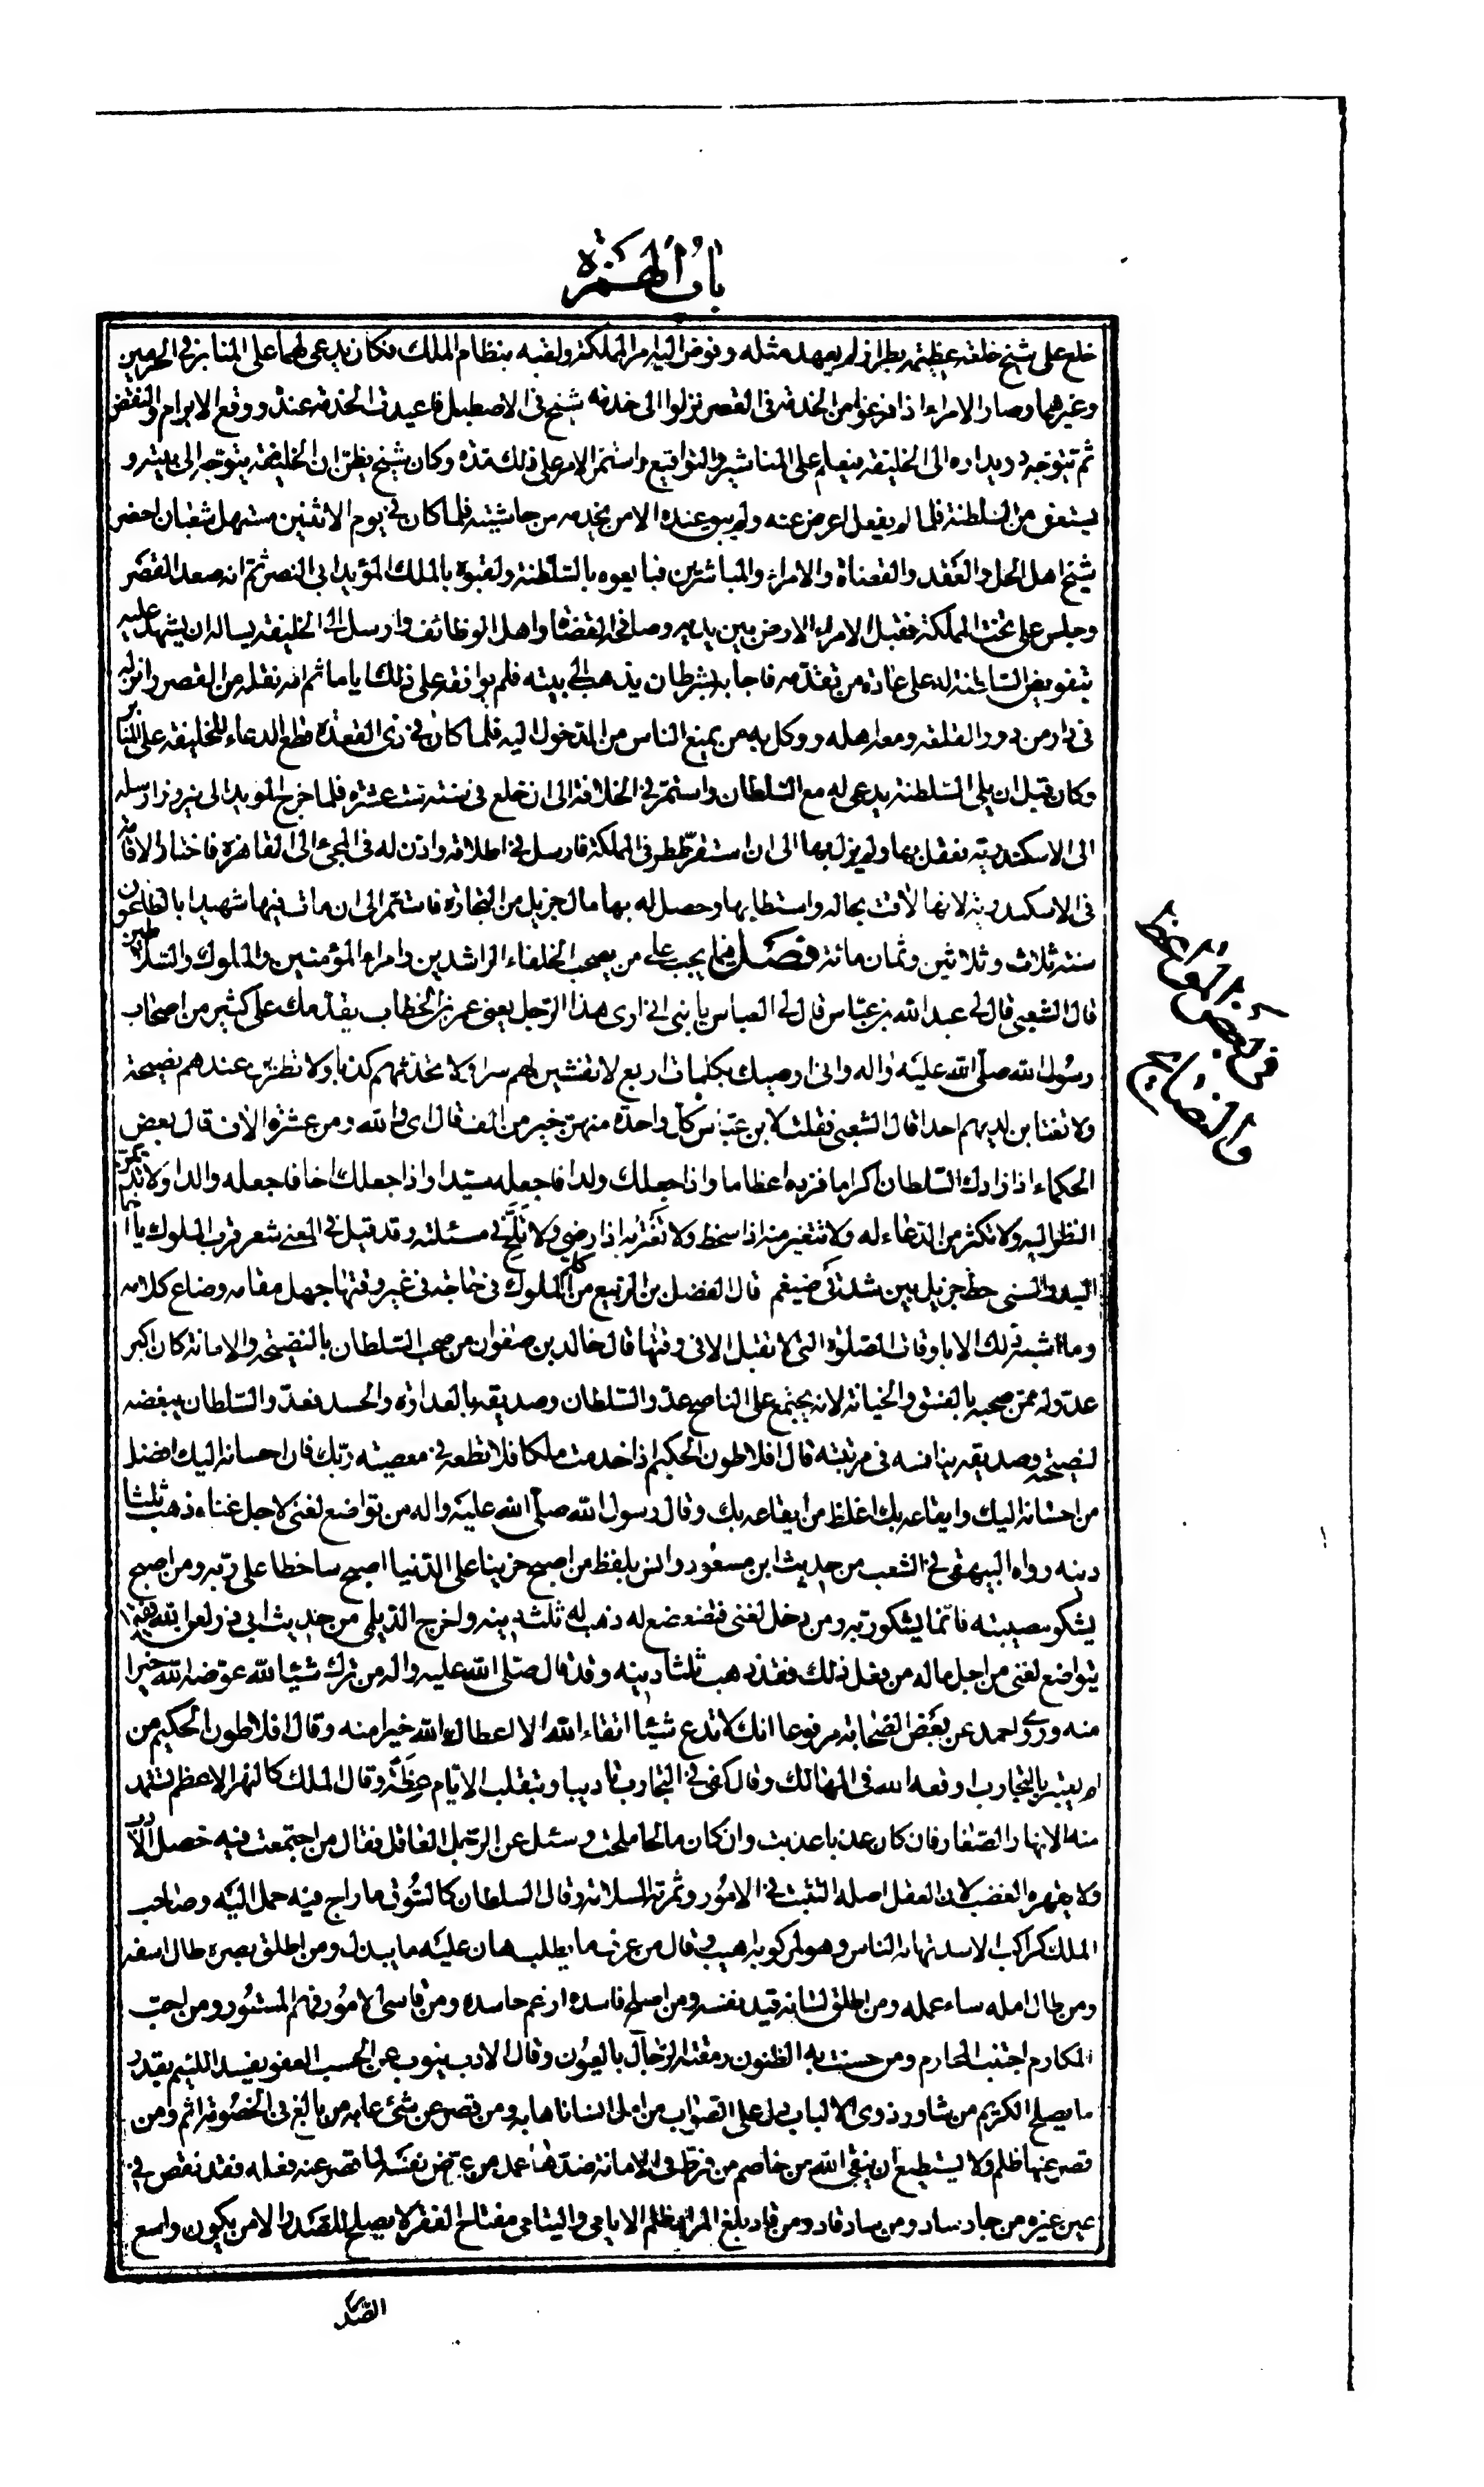 باب الهمزة
خلع على شيخ خلعة عظيمة بطراز لم يعهد مثله وفوض اليه امر المملكة ولقبه بنظام الملك فكان يدعى لهما على المنابر في الحرمين
وغيرهما وصار الامراء اذا فرغوا من الخدمة في القصر نزلوا الى خدمة شيخ في الاصطبل فاعيدت الخدمة عنده ووقع الابرام والنقض
ثم يتوجه دويداره الى الخليفة فيعلم على المناشير والتواقيع واستمر الامر على ذلك مدة وكان شيخ يظن ان الخليفة يتوجه الى بيته و
يستعفى من السلطنة فلما لم يفعل اعرض عنه ولم يبق عنده الا من يخدمه من حاشيته فلما كان في يوم الاثنين مستهل شعبان احضر
شيخ اهل الحل والعقد والقضاة والامراء والمباشرين فبايعوه بالسلطنة ولقبوه بالملك المؤيد ابى النصر ثم انه صعد القصر
وجلس على تخت المملكة فقبل الامراء الارض بين يديه وصافح القضاة واهل الوظائف وارسل الى الخليفة يساله ان يشهد عليه
بتفويض السلطنة له على عادة من تقدمه فاجاب بشرط ان يذهب الى بيته فلم يوافقه على ذلك اياما ثم انه نقله من القصر وانزله
في دار من دور القلعة ومعه اهله ووكل به من يمنع الناس من الدخول اليه فلما كان في ذي القعدة قطع الدعاء للخليفة على المنابر
وكان قبل ان يلى السلطنة يدعى له مع السلطان واستمر في الخلافة الى ان خلع في سنة ست عشرة فلما خرج المويد الى نيروز ارسله
الى الاسكندرية فعقل بها ولم يزل بها الى ان استقر ططر في المملكة فارسل في اطلاقه واذن له في المجئ الى القاهرة فاختار الاقامة
في الاسكندرية لانها لاقت بحاله واستطابها وحصل له بها مال جزيل من التجارة فاستمر الى ان مات فيها شهيدا بالطاعون
سنة ثلاث وثلاثين وثمان مائة فصل فيما يجب على من يصحب الخلفاء الراشدين وامراء المؤمنين والملوك والسلاطين
قال الشعبى قال لى عبد الله بن عباس قال لى العباس يا بنى انى ارى هذا الرجل يعنى عمر بن الخطاب يقدمك على كثير من اصحاب
رسول الله صلى الله عليه واله وانى اوصيك بكلمات اربع لا تفشين لهم سرا ولا تحدثهم كذبا ولا تطوين عندهم نصيحة
ولا تغتابن لديهم احدا قال الشعبى فقلت لابن عباس كل واحدة منهن خير من الف قال اى والله ومن عشرة الاف قال بعض
الحكماء اذا زادك السلطان اكراما فزده اعظاما واذا جعلك ولدا فاجعله سيدا واذا جعلك اخا فاجعله والدا ولا تديم
النظر اليه ولا تكثر من الدعاء له ولا تتغير منه اذا سخط ولا تغتر به اذا رضي ولا تلح في مسئلته وقد قيل في المعنى شعر قرب الملوك يا اخا
البدر السنى حظ جزيل بين شدقى ضيغم قال الفضل بن الربيع من كلم الملوك في حاجة في غير وقتها جهل مقامه وضاع كلامه
وما اشبه ذلك الا باوقات الصلوة التى لا تقبل الا في وقتها قال خالد بن صفوان من صحب السلطان بالنصيحة والامانة كان اكبر
عدو له ممن صحبه بالفسق والخيانة لانه يجتمع على الناصح عدو السلطان وصديقه بالعداوة والحسد فعدو السلطان يبغضه
لنصيحته وصديقه ينافسه في مرتبته قال افلاطون الحكيم اذا خدمت ملكا فلا تطعه في معصيته ربك فان احسانه اليك افضل
من احسانه اليك وايقاعه بك اغلظ من ايقاعه بك وقال رسول الله صلى الله عليه واله من تواضع لغنى لاجل غناه ذهب ثلثا
دينه رواه البيهقى في الشعب من حديث ابن مسعود وانس بلفظ من اصبح حزينا على الدنيا اصبح ساخطا على ربه ومن اصبح
يشكو مصيبته فانما يشكو ربه ومن دخل لغنى فتضعضع له ذهب ثلثا دينه واخرج الديلمى من حديث ابى ذر لعن الله فقيرا
يتواضع لغنى من اجل ماله من يفعل ذلك فقد ذهب ثلثا دينه وقد قال صلى الله عليه واله من ترك شيئا لله عوضه الله خيرا
منه وروى احمد عن بعض الصحابة مرفوعا انك لا تدع شيئا اتقاء الله الا اعطاك الله خيرا منه وقال افلاطون الحكيم من
لم يعتبر بالتجارب اوقعه الله في المهالك وقال كفى في التجارب تاديبا وبتقلب الايام عظة وقال الملك كالنهر الاعظم تستمد
منه الانهار الصغار فان كان عذبا عذبت وان كان مالحا ملحت وسئل عن الرجل العاقل فقال من اجتمعت فيه خصل
ولا يقهره الغضب لان العقل اصله التثبت في الامور وثمرته السلامة وقال السلطان كالسوق ما راج فيه حمل اليه وصاحب
الملك كراكب الاسد تهابه الناس وهو لمركوبه اهيب وقال من عرف ما يطلب هان عليه ما يبذل ومن اطلق بصره طال اسفه
ومن طال امله ساء عمله ومن اطلق لسانه قيد نفسه ومن اصلح فاسده ارغم حاسده ومن قاسى الامور فهم المستور ومن احب
المكارم اجتنب المحارم ومن حسنت به الظنون رمقته الرجال بالعيون وقال الادب ينوب عن الحسب العفو يفسد اللئيم بقدر
ما يصلح الكريم من شاور ذوى الالباب دل على الصواب من امل انسانا هابه ومن قصر عن شئ عابه من بالغ في الخصومة اثم ومن
قصر عنها ظلم ولا يستطيع ان يتقى الله من خاصم من فرط في الامانة
عين غيره من جاد ساد ومن ساد قاد ومن قاد بلغ المراد ظلم الايامى واليتامى مفتاح الفقر لا يصلح للصدر الا من يكون واسع
الصدر
في بعض المواعظ
والنصايح